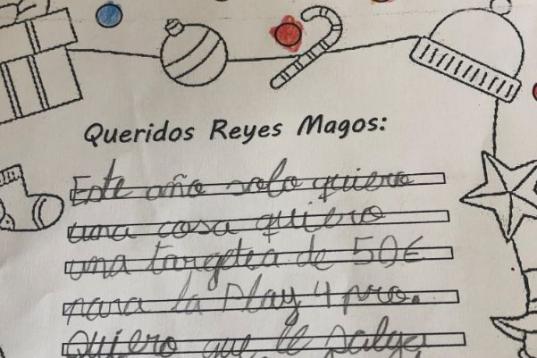 Queridos Reyes Magos:
Este año solo quiero
una cosa quiero
una targetea de 50€
para la Play 4 pro.
Quiero que le salga